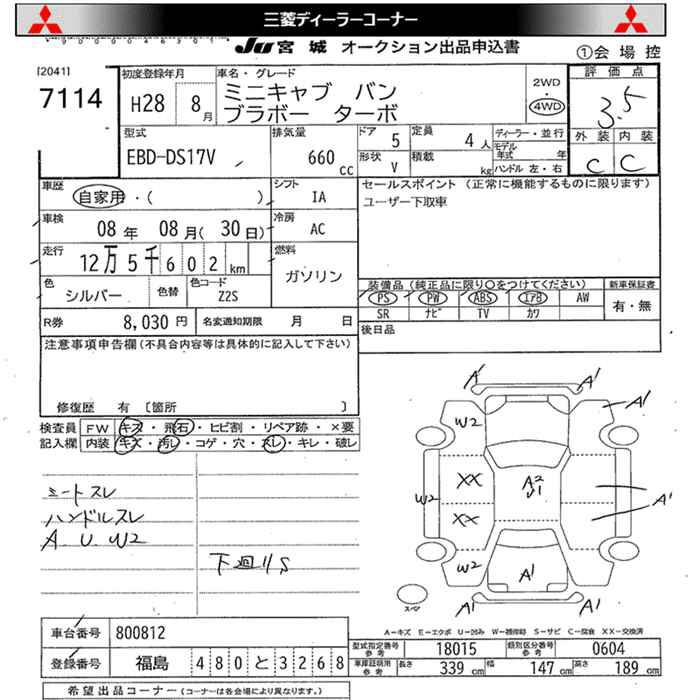 三菱ディーラーコーナー
JU 宮城 オークション出品申込書
①会場控
[2041]
7114
初度登録年月
H28 8月
車名・グレード
ミニキャブ バン
ブラボー ターボ
2WD
・
4WD
評価点
3.5
外装 内装
C C
型式
EBD-DS17V
排気量
660 cc
ドア 5
定員 4人
形状 V
積載 kg
ディーラー・並行
モデル年式 年
ハンドル 左・右
車歴
自家用・( )
シフト
IA
セールスポイント (正常に機能するものに限ります)
ユーザー下取車
車検
08年 08月(30日)
冷房
AC
走行
12万5千602km
燃料
ガソリン
色
シルバー
色替
色コード
Z2S
装備品 (純正品に限り○をつけてください)
新車保証書
PS PW ABS エアB AW
SR ナビ TV カワ
有・無
R券 8,030円
名変通知期限 月 日
後日品
注意事項申告欄(不具合内容等は具体的に記入して下さい)
修復歴 有 〔箇所 〕
検査員記入欄
FW キズ・飛石・ヒビ割・リペア跡・×要
内装 キズ・汚レ・コゲ・穴・スレ・キレ・破レ
シートスレ
ハンドルスレ
A U W2
下廻りS
A1 A1
W2 A1
XX A2 U1
W2 A1
XX
W2 A1
A1 A1
スペア
A-キズ E-エクボ U-凹み W-補修跡 S-サビ C-腐食 XX-交換済
車台番号 800812
登録番号 福島 480 と 3268
型式指定番号 参考 18015
類別区分番号 参考 0604
車庫証明用 参考 長さ 339 cm 幅 147 cm 高さ 189 cm
希望出品コーナー (コーナーは各会場により異なります。)